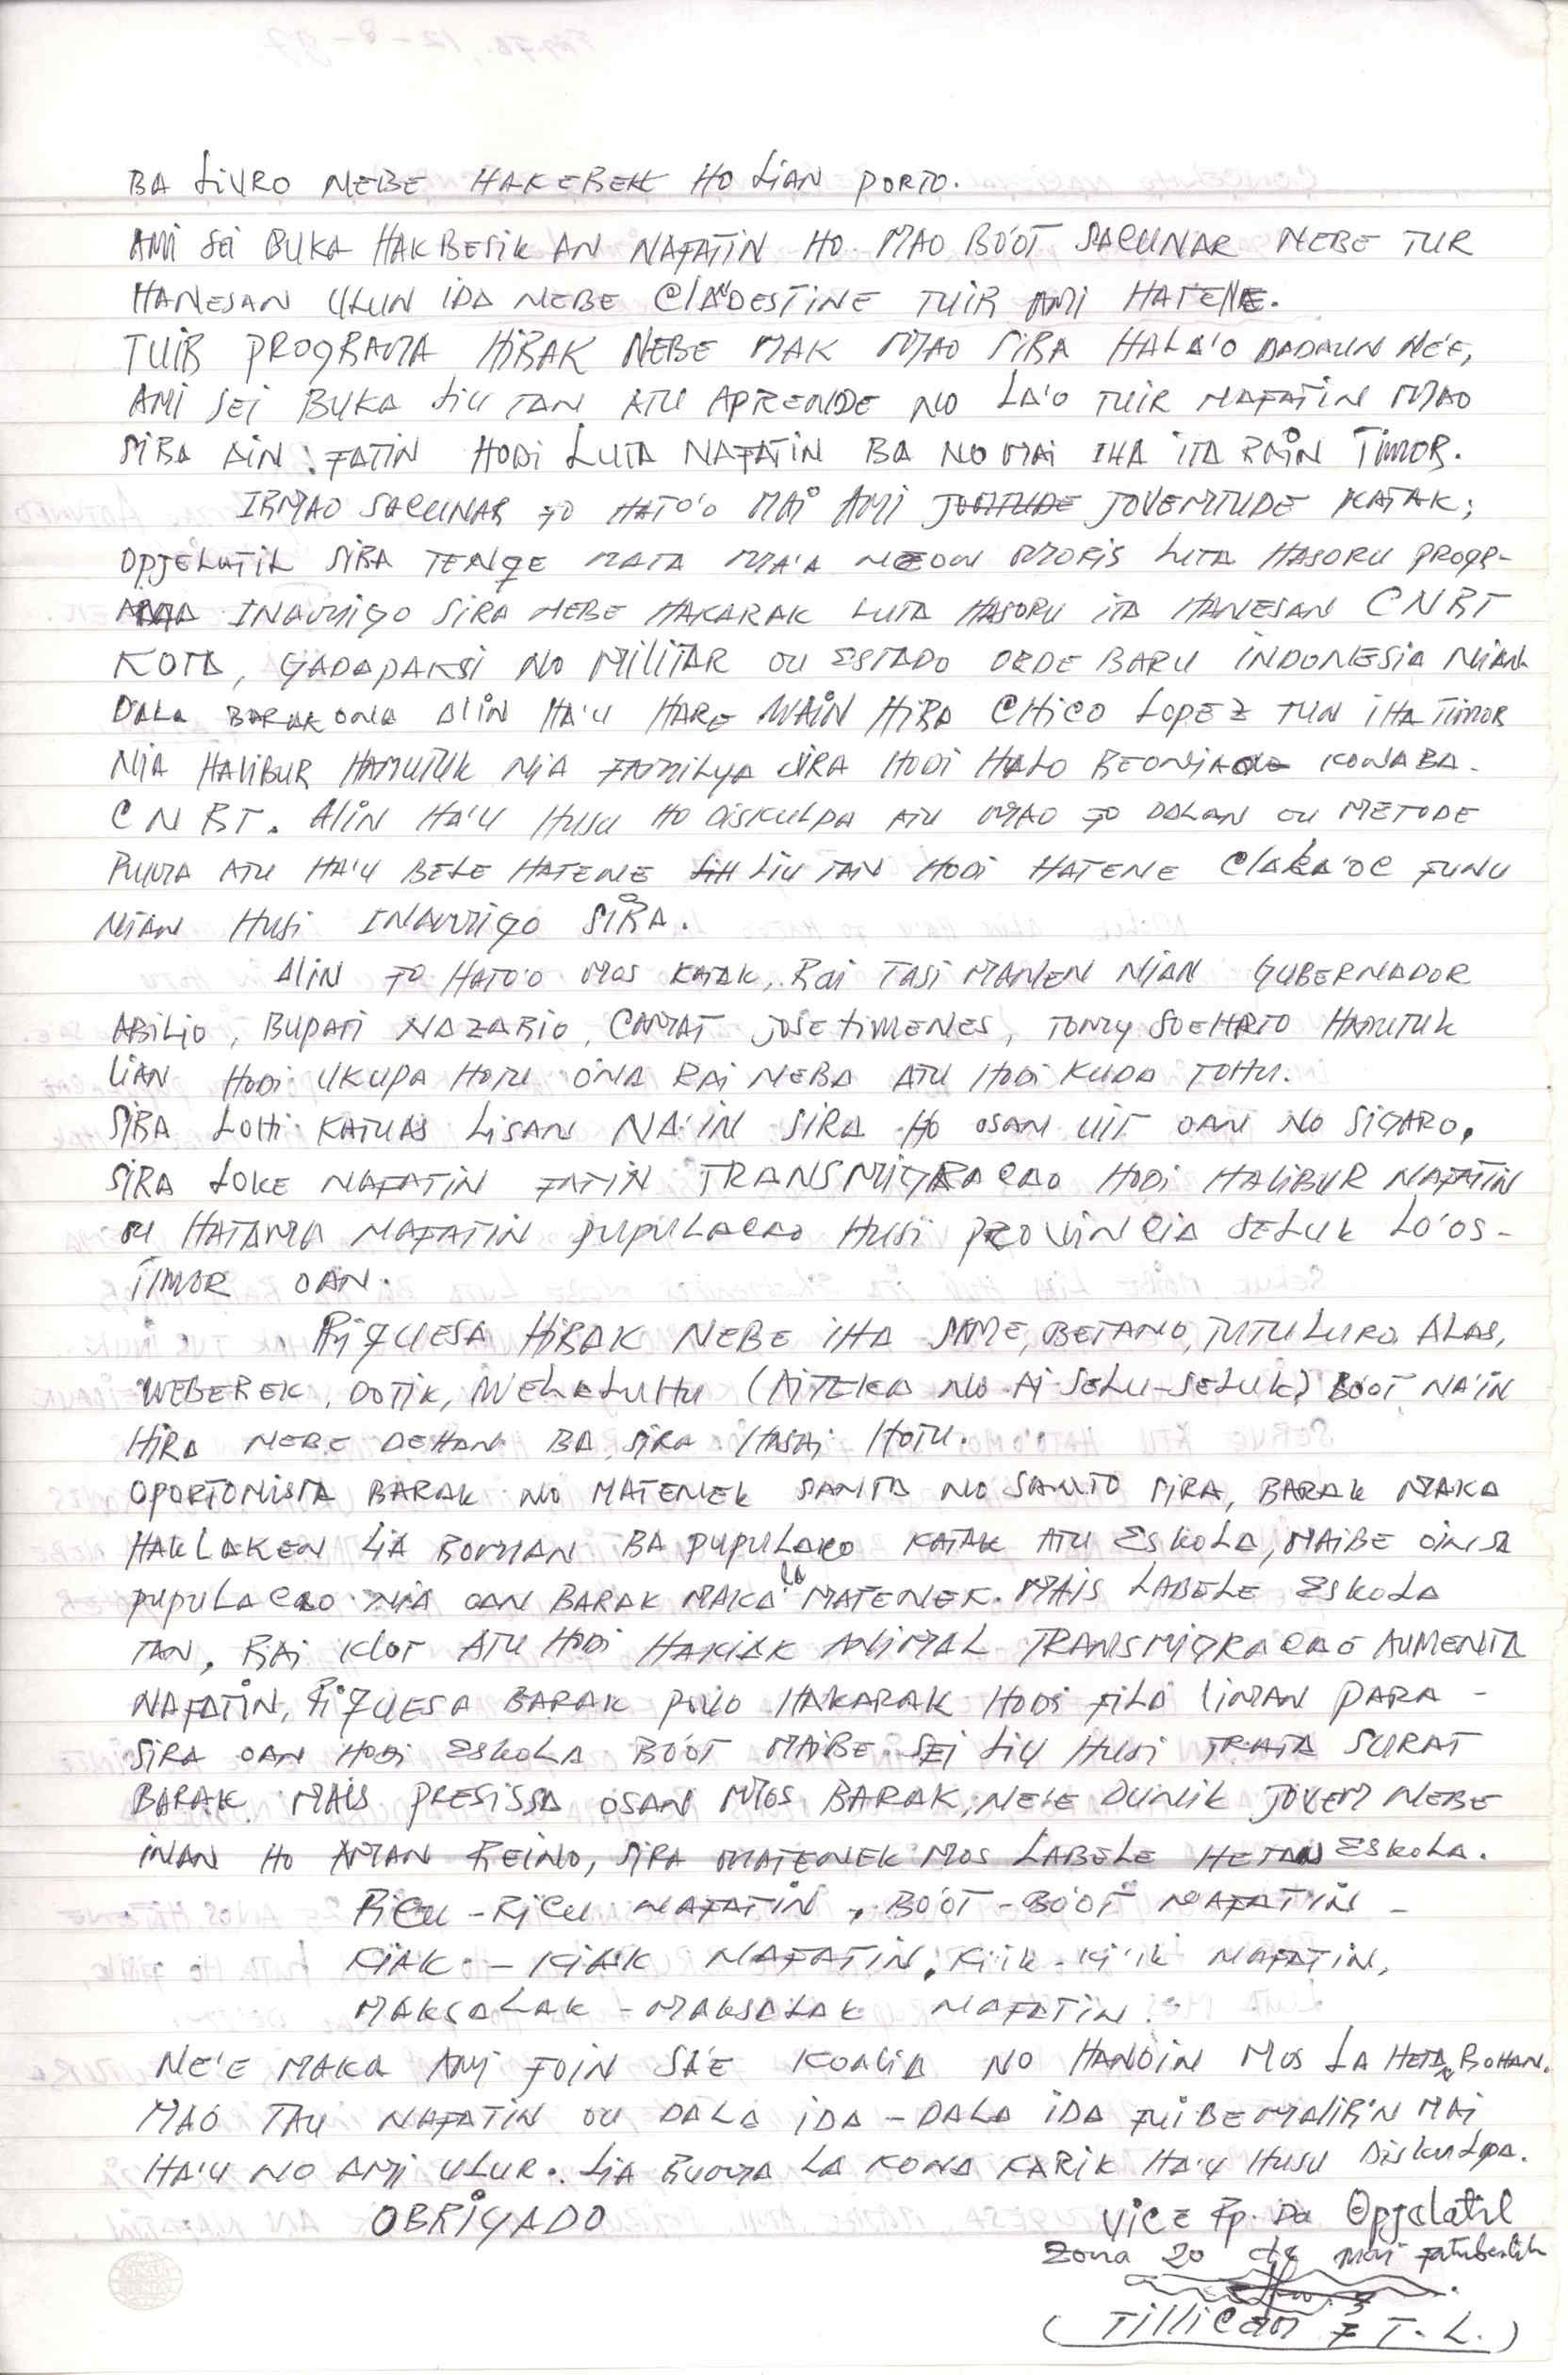 BA LIVRO NEBE HAKEREK HO LIAN PORTO.
AMI SEI BUKA HAKBESIK AN NAFATIN HO MAO BO'OT SACUNAR NEBE TUR
HANESAN ULUN IDA NEBE CLANDESTINE TUIR AMI HATENE.
TUIR PROGRAMA HIRAK NEBE MAK MAO SIRA HALA'O DADAUN NE'E,
AMI SEI BUKA LIU TAN ATU APRENDE NO LA'O TUIR NAFATIN MAO
SIRA AIN FATIN HODI LUTA NAFATIN BA NO MAI IHA ITA RAIN TIMOR.
IRMAO SACUNAR FO HATO'O MAI AMI JOVENTUDE KATAK;
OPJELATIL SIRA TENQE MATA MA'A NEON MORIS LUTA HASORU PROGR-
AMA INAMIGO SIRA NEBE HAKARAK LUTA HASORU ITA HANESAN CNRT
KOTA, GADAPAKSI NO MILITAR OU ESTADO ORDE BARU INDONESIA NIAN
DALA BARAK ONA ALIN HA'U HARE WAIN HIRA CHICO LOPEZ TUN IHA TIMOR
NIA HALIBUR HAMUTUK NIA FAMILYA SIRA HODI HALO REONIAO KONA BA
CNRT. ALIN HA'U HUSU HO DISKULPA ATU MAO FO DALAN OU METODE
RUMA ATU HA'U BELE HATENE LIU TAN HODI HATENE CLALA'OC FUNU
NIAN HUSI INAMIGO SIRA.
ALIN FO HATO'O MOS KATAK, RAI TASI MANEN NIAN GUBERNADOR
ABILIO, BUPATI NAZARIO, CAMAT JOSE XIMENES, TOMY SOEHRTO HAMUTUK
LIAN HODI UKUPA HOTU ONA RAI NEBA ATU HODI KUDA TOHU.
SIRA LOHI KATUAS LISAN NA'IN SIRA HO OSAN UIT OAN NO SIGARO,
SIRA LOKE NAFATIN FATIN TRANSMIGRACAO HODI HALIBUR NAFATIN
OU HATAMA NAFATIN PUPULACAO HUSI PROVINCIA SELUK LO'OS-
TIMOR OAN.
RIQUESA HIRAK NEBE IHA SAME, BETANO, TUTULURO, ALAS,
WEBEREK, DOTIK, WELALUHU (AITEKA NO AI SELU-SELUK) BOOT NA'IN
HIRA NEBE DEHAN BA SIRA HASAI HOTU.
OPORTONISTA BARAK NO MATENEK SANTA NO SANTO SIRA, BARAK MAKA
HAKLAKEN LIA ROMAN BA PUPULACO KATAK ATU ESKOLA, MAIBE OINSA
PUPULACAO NIA OAN BARAK MAKA LA MATENEK. MAIS LABELE ESKOLA
TAN, RAI KLOT ATU HODI HAKIAK ANIMAL TRANSMIGRACAO AUMENTA
NAFATIN, RIQUESA BARAK POVO HAKARAK HODI FILA LIMAN PARA -
SIRA OAN HODI ESKOLA BO'OT MAIBE SEI LIU HUSI TRATA SURAT
BARAK MAIS PRESISSA OSAN MOS BARAK, NE'E DUNIK JOVEM NEBE
INAN HO AMAN REINO, SIRA MATENEK MOS LABELE HETAN ESKOLA.
RICU - RICU NAFATIN, BO'OT - BO'OT NAFATIN -
KIAK - KIAK NAFATIN, KI'IK - KI'IK NAFATIN,
MAKSALAK - MAKSALAK NAFATIN.
NE'E MAKA AMI FOIN SA'E KOALIA NO HANOIN MOS LA HETAN ROHAN.
MAO TAU NAFATIN OU DALA IDA - DALA IDA FUI BE MALIRIN MAI
HA'U NO AMI ULUR. LIA RUMA LA KONA KARIK HA'U HUSU DISKULPA.
OBRIGADO
VICE Rp. Da Opjelatil
Zona 20 de Mai Fatuberliu
(TILLICAM F T. L.)